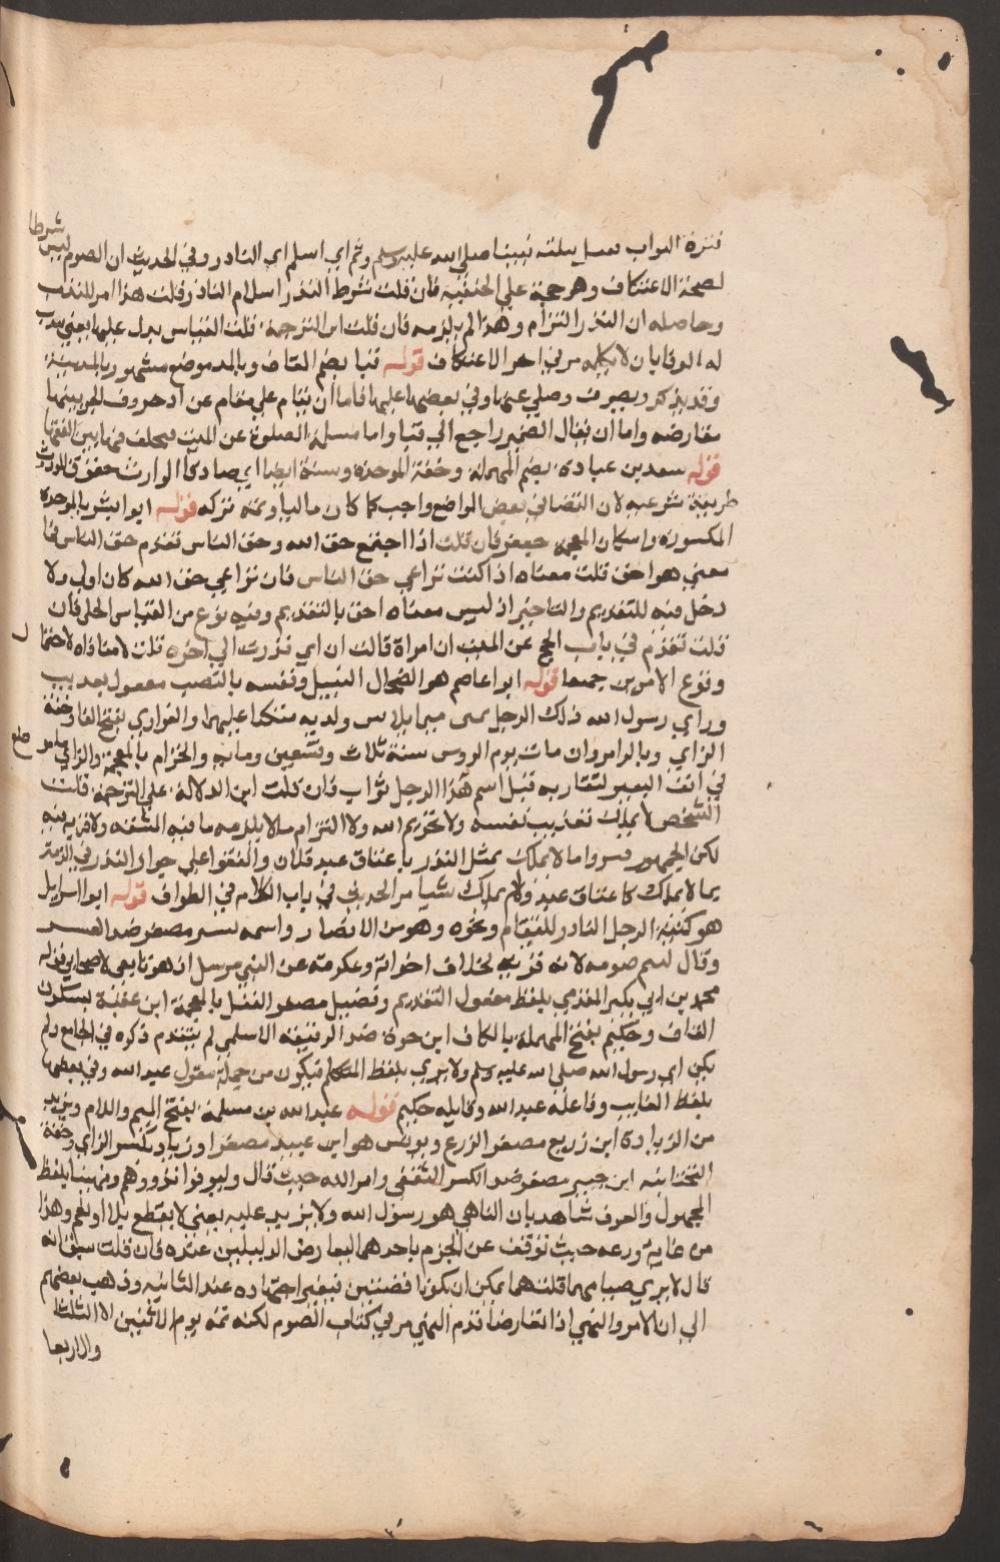 شرطا
فترة البواب ليلته نبينا صلى الله عليه وسلم وثم اي اسلم اي النادر وفي الحديث ان الصوم ليس
لصحة الاعتكاف وهو حجة علي الحنفية فان قلت شرط النذر اسلام الناذر قلت هذا امر للندب
وحاصله ان النذر التزام وهذا لم يلزمه فان قلت اين الترجمة قلت القياس يدل عليها يعني يندب
له الوفا بان لا يكلمه مر في اخر الاعتكاف قوله قبا بضم القاف وبالمد موضع مشهور بالمدينة
وقد يذكر ويصرف وصلي عنها وفي بعضها عليها فاما ان يقام علي مقام عن اذ حروف الجر بينهما
مقارضة واما ان يقال الضمير راجع الي قبا واما مسلة الصلوة عن الميت فمختلف فيها بين الفقها
قوله سعد بن عبادة بضم المهملة وخفة الموحدة وسنة ايضا اي صار قضا الوارث حقوق الموروث
طريقة شرعية لان القضا في بعض المواضع واجب كما كان ماليا وثمه تركه قوله ابو بشر بالموحدة
المكسورة واسكان المعجمة جعفر فان قلت اذا اجتمع حق الله وحق الناس تقدم حق الناس فما
معني هو احق قلت معناه اذا كنت تراعي حق الناس فان تراعي حق الله كان اولي ولا
دخل فيه للتقديم والتاخير اذ ليس معناه احق بالتقديم وفيه نوع من القياس الجلي فان
قلت تقدم في باب الحج عن الميت ان امراة قالت ان امي نذرت الي اخره قلت لا منافاة لاحتمال
وقوع الامرين جميعا قوله ابو عاصم هو الضحاك النبيل ونفسه بالنصب مفعول تعذيب
وراي رسول الله ذلك الرجل يمشي بين ولديه متكئا عليهما والفزاري بفتح الفا وخفة
الزاي وبالرا مروان مات يوم التروية سنة ثلاث وتسعين وماية والخزام بالمعجمة والزاي ما مر
في انف البعير لتقاربه قيل اسم هذا الرجل ثواب فان قلت اين الدلالة علي الترجمة قلت
الشخص لا يملك تعذيب نفسه ولا تحريم الله ولا التزام ما لا يلزمه ما فيه المشقة ولا قربة فيه
لكن الجمهور فسروا ما لا يملك بمثل النذر باعتاق عبد فلان واتفقوا علي جواز النذر في الذمة
بما لا يملك كاعتاق عبد ولم يملك شيا مر الحديث في باب الكلام في الطواف قوله ابو اسرايل
هو كنية الرجل النادر للقيام ونحوه وهو من الانصار واسمه يسير مصغر ضد العسر
وقال ليتم صومه لانه قربة بخلاف اخواته وعكرمة عن النبي مرسل اذ هو تابعي لا صحابي قوله
محمد بن ابي بكر المقدمي بلفظ مفعول التقديم وفضيل مصغر الفضل بالمعجمة ابن عقبة بسكون
القاف وحكيم بفتح المهملة بالكاف ابن حرة ضد الرقيقة الاسلمي لم يتقدم ذكره في الجامع ولم
يكن اي رسول الله صلي الله عليه وسلم ولا يري بلفظ المتكلم فيكون من جملة مقول عبد الله وفي بعضها
بلفظ الغايب وفاعله عبد الله وقايله حكيم قوله عبد الله بن مسلمة بفتح الميم واللام ويزيد
من الزيادة ابن زريع مصغر الزرع ويونس هو ابن عبيد مصغرا وزياد بكسر الزاي وخفة
التحتانية ابن جبير مصغر ضد الكسر الثقفي وامر الله حيث قال وليوفوا نذورهم ونهينا بلفظ
المجهول والعرف شاهد بان الناهي هو رسول الله ولا يزيد عليه يعني لا يقطع بلا او نعم وهذا
من غاية ورعه حيث توقف عن الجزم باحدهما لتعارض الدليلين عنده فان قلت سبق انه
قال لا يري صيامهما قلت هما يمكن ان يكونا قضيتين فتغير اجتهاده عند الثانية وذهب بعضهم
الي ان الامر والنهي اذا تعارضا قدم النهي مر في كتاب الصوم لكنه ثمه يوم الاثنين لا الثلثا
والاربعا